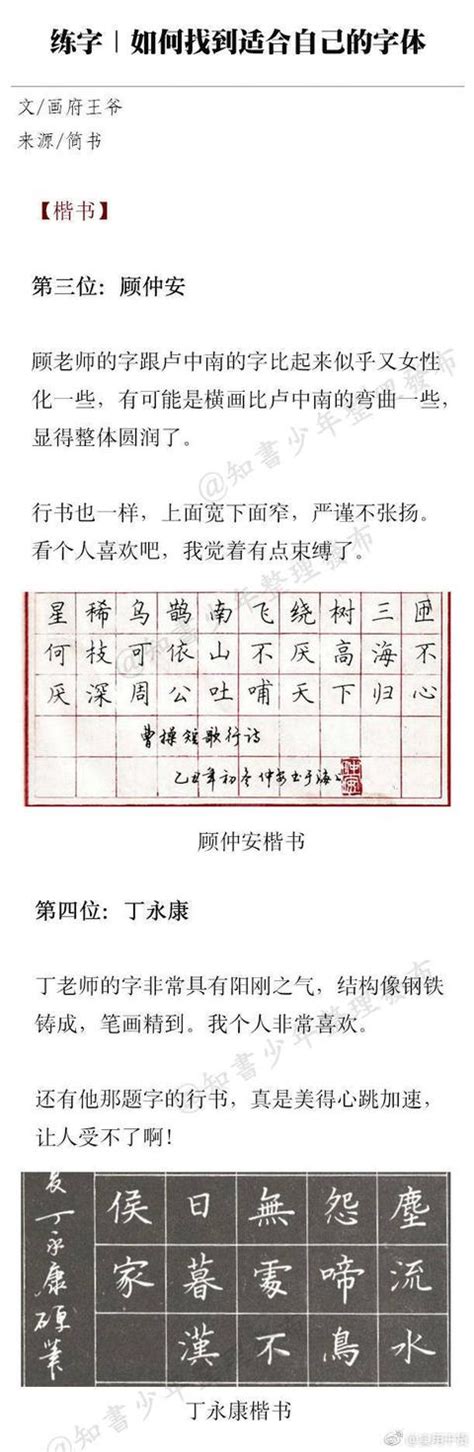 练字 | 如何找到适合自己的字体
文/画府王爷
来源/简书
【楷书】
第三位：顾仲安
顾老师的字跟卢中南的字比起来似乎又女性
化一些，有可能是横画比卢中南的弯曲一些，
显得整体圆润了。
行书也一样，上面宽下面窄，严谨不张扬。
看个人喜欢吧，我觉着有点束缚了。
@知書少年整理發布
星稀乌鹊南飞绕树三匝
何枝可依山不厌高海不
厌深周公吐哺天下归心
曹操短歌行诗
乙丑年初冬仲安书于海上
顾仲安楷书
第四位：丁永康
丁老师的字非常具有阳刚之气，结构像钢铁
铸成，笔画精到。我个人非常喜欢。
还有他那题字的行书，真是美得心跳加速，
让人受不了啊！
@知書少年整理發布
塵流水
怨啼鳥
無處不
日暮漢
侯家
丁永康硬筆
丁永康楷书